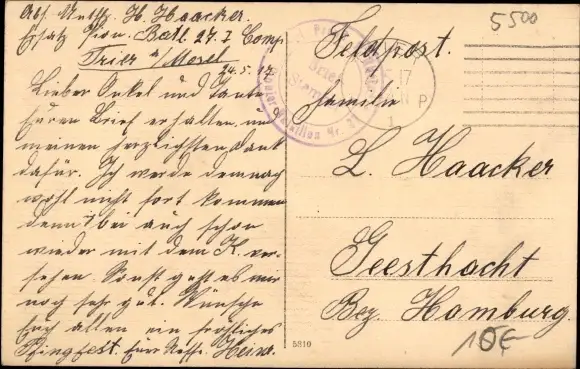 Abs. Musk. H. Haacker.
Ersatz Pion. Batl. 27. I Comp
Trier a/Mosel
24.5.17.
Lieber Onkel und Tante
Euren Brief erhalten, u.
meinen herzlichsten Dank
dafür. Ich werde demnach
wohl nicht fort kommen
denn bei auch schon
wieder mit dem K. ver-
sehen. Sonst geht es mir
noch sehr gut. Wünsche
Euch allen ein fröhliches
Pfingstfest. Euer Neffe. Heinr.
5500
Feldpost.
Familie
L. Haacker
Geesthacht
Bez. Hamburg.
10€
5810